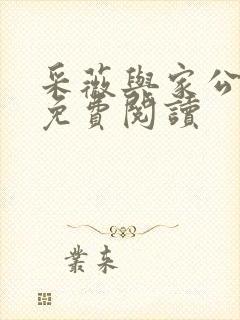 采薇與家公
免費閱讀
叢來